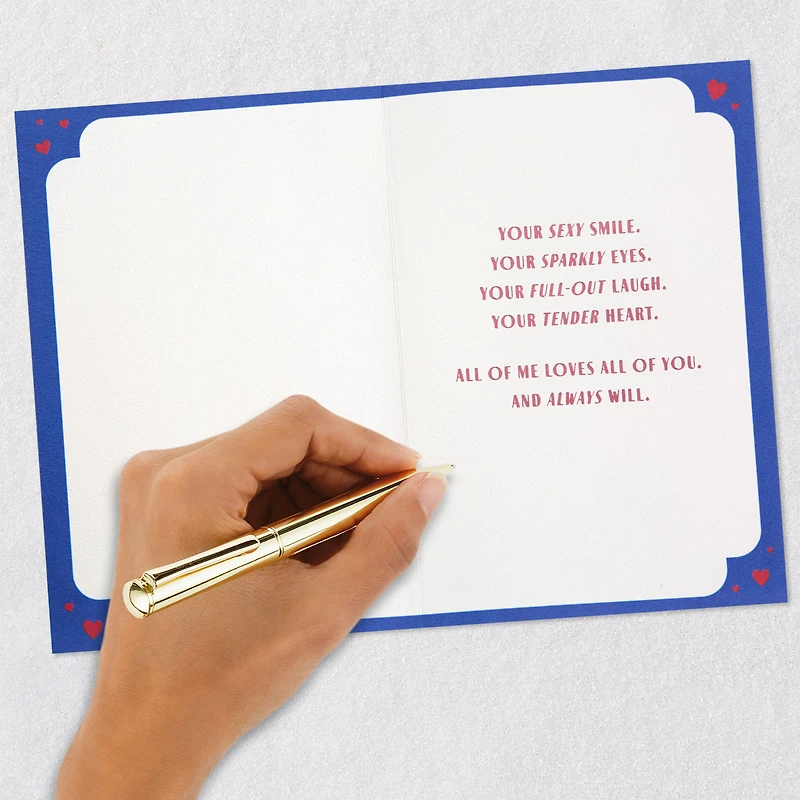 YOUR SEXY SMILE.
YOUR SPARKLY EYES.
YOUR FULL-OUT LAUGH.
YOUR TENDER HEART.
ALL OF ME LOVES ALL OF YOU.
AND ALWAYS WILL.